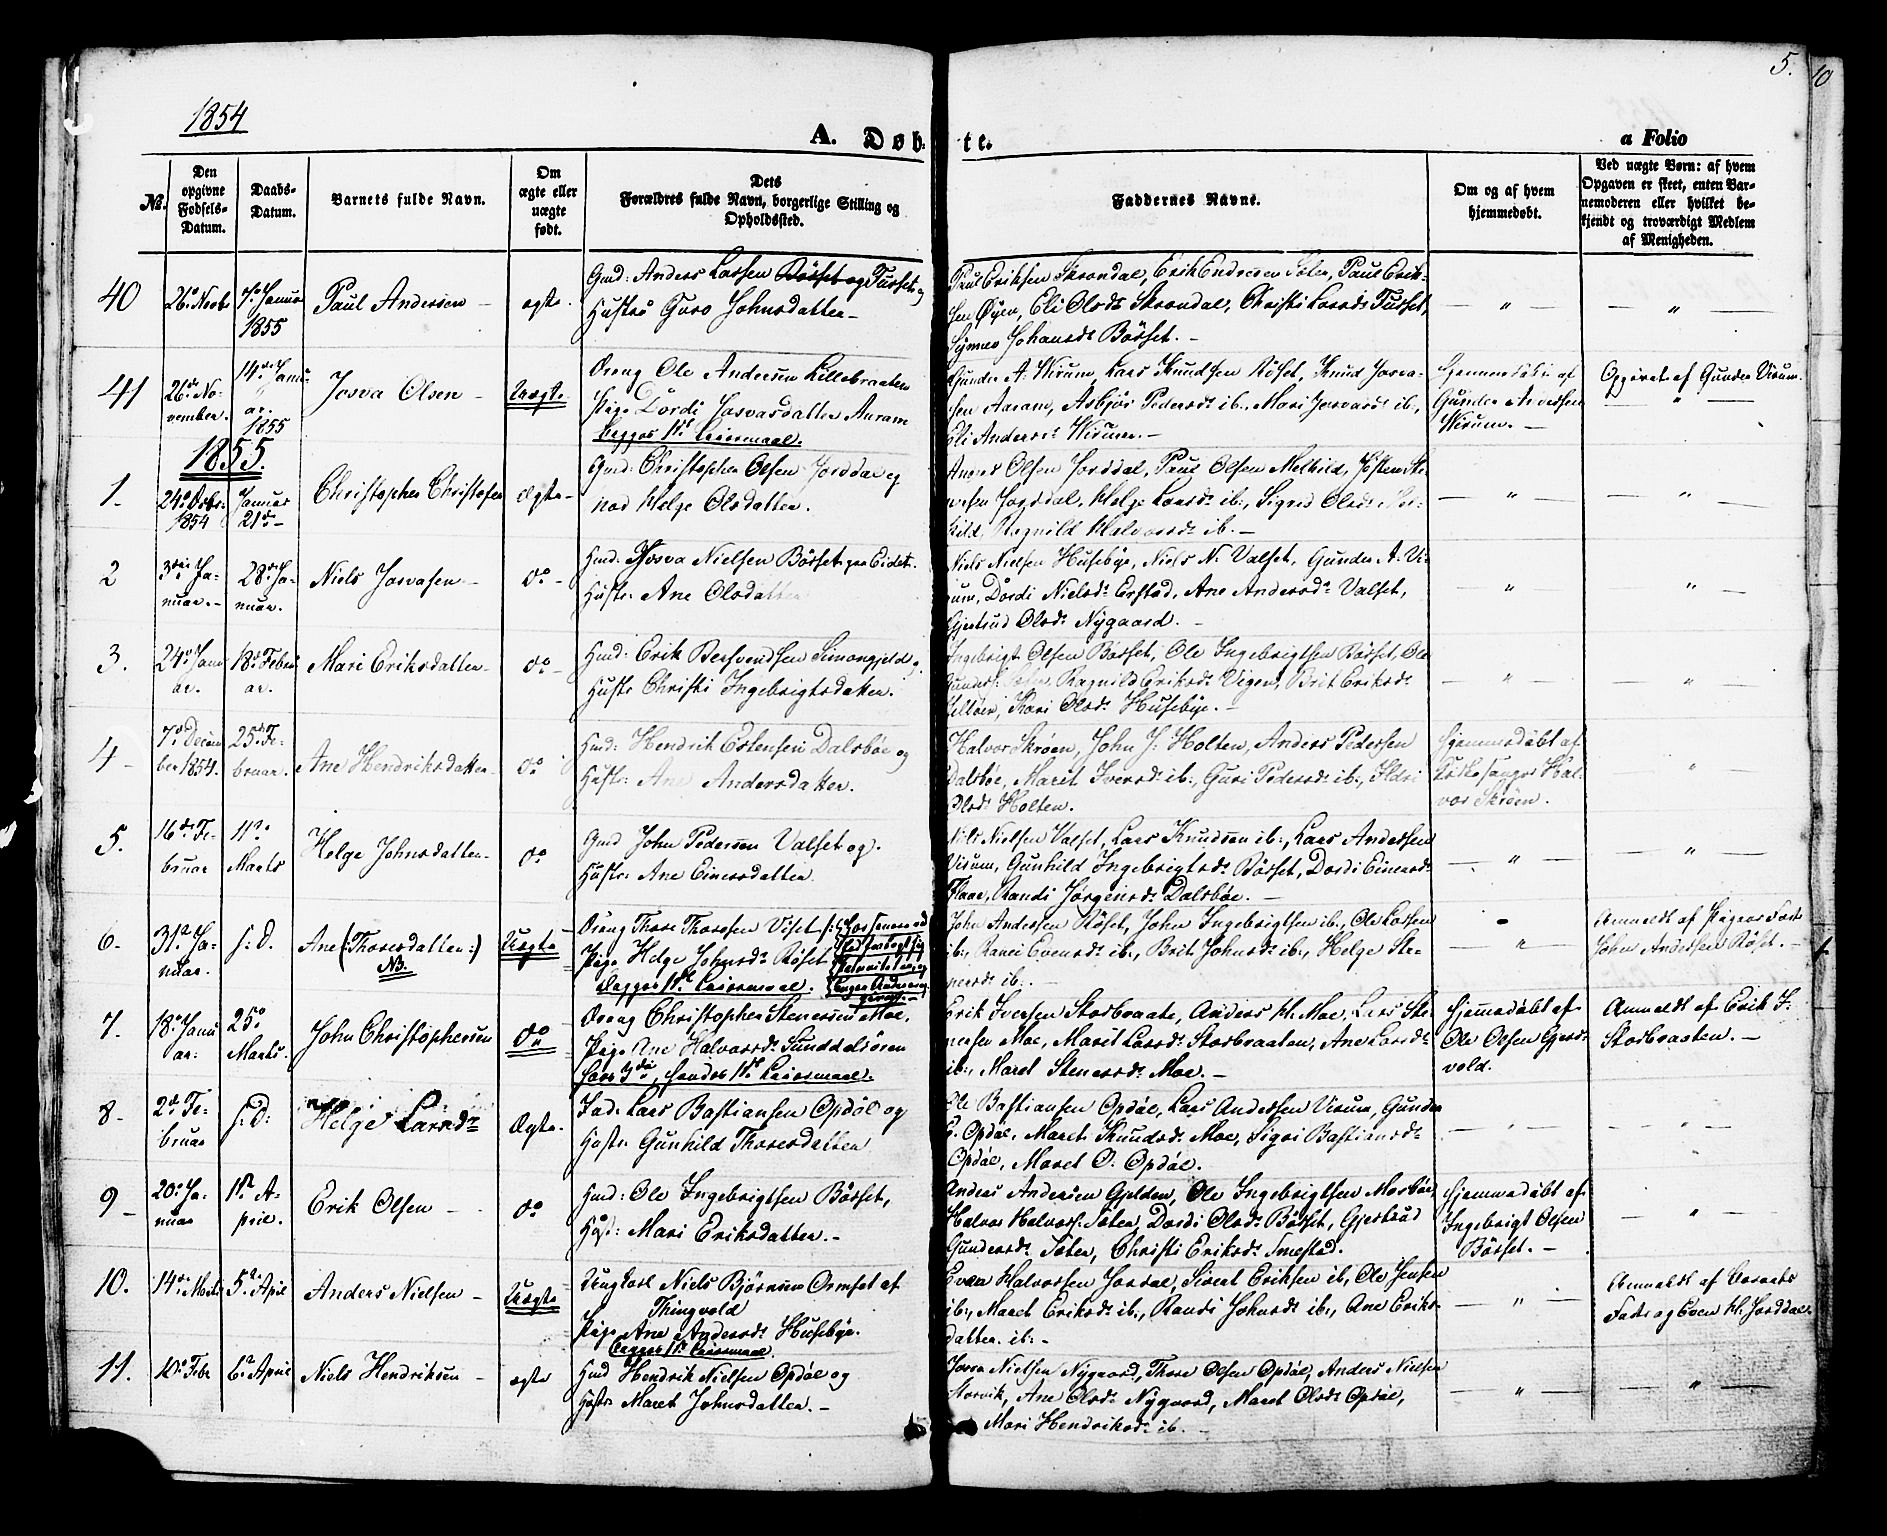 5.
10
1854
A. Døbte.
a Folio
No.
Den opgivne Fødsels-Datum.
Daabs-Datum.
Barnets fulde Navn.
Om ægte eller uægte født.
Dets Forældres fulde Navn, borgerlige Stilling og Opholdssted.
Faddernes Navne.
Om og af hvem hjemmedøbt.
Ved uægte Børn: af hvem Opgaven er skeet, enten Barnemoderen eller hvilket bekjendt og troværdigt Medlem af Menigheden.
40
26de Novbr
7de Januar 1855
Paul Andersen –
ægte.
Gmd: Anders Larsen Börset og Tusset og
Hustru Guro Johnsdatter –
Paul Eriksen Skrøndal, Erik Endresen Sæter, Paul Erik-
sen Øyen, Eli Olsdr Skrøndal, Christi Larsdr Tusset,
Johansdr Börset. –
— " —
— " —
41
26de No-
vember.
14de Janu-
ar.
1855
Josva Olsen –
Uægte
Dreng Ole Andersen Lillebraaten
Pige Dordi Josvasdatter Aaram
Begges 1ste Leiermaal.
Gunder A. Wirum, Lars Knudsen Röset, Knud Josva-
sen Aaram, Asbjør Pedersdr ib:, Mari Josvasdr ib:,
Eli Andersdr Wirum. –
Hjemmedøbt af
Gunder Andersen
Wirum. –
Opgivet af Gunder Virum.
— " —
1855.
1.
24de Octbr:
1854
Januar
21de –
Christopher Christofersen
ægte –
Gmd: Christopher Olsen Jorddal og
Helge Olsdatter.
Olsen Jorddal, Paul Olsen Melhild, Josten Ste-
nersen Jorddal, Helge Larsdr ib:, Sigrid Olsdr Mel-
hild, Ragnild Halvorsdr ib. –
— " —
— " —
2
3die Ja-
nuar. –
28de Ja-
nuar.
Niels Josvasen –
do –
Hmd: Josva Nielsen Börset paa Eidet.
Hustr: Ane Olsdatter
Niels Nielsen Husebye, Niels N. Valset, Gunder A. Vi-
rum, Dordi Nielsdr Erstad, Ane Andersdr Valset,
Gjertrud Olsdr Nygaard. –
"
" —
3.
24de Janu-
ar.
18de Febru-
ar.
Mari Eriksdatter –
do –
Hmd: Erik Bersvendsen Simongjeld og
Hustr Christi Ingebrigtsdatter.
Ingebrigt Olsen Börset, Ole Ingebrigtsen Börset, Ole
Gunders. Sæter, Ragnild Eriksdr Vegen, Brit Eriksdr
Kari Olsdr Husebye. –
— " —
— " —
4 –
7de Decem-
ber 1854.
25de Fe-
bruar.
Ane Hendriksdatter
do
Hmd: Hendrik Estensen Dalsböe og
Hustr: Ane Andersdatter.
Halvor Skröen, John J: Holten, Anders Pedersen
Dalsböe, Marit Iversdr ib:, Guri Pedersdr ib:, Ildri
Olsdr Holten.
Hjemmedöbt af
Kirkesanger Hal-
vor Skröen.
"
5.
16de Fe-
bruar
11te
Marts
Helge Johnsdatter –
do
Gmd John Pedersen Valset og.
Hustr: Ane Einersdatter
Nils Nielsen Valset, Lars Knudsen ib:, Lars Andersen
Virum, Gunhild Ingebrigtsdr Börset, Dordi Einersdr
Flaae, Randi Jørgensdr Dalsböe. –
— " —
— " —
6.
31te Ja-
nuar.
s. D.
Ane (: Thoresdatter:)
NB.
Uægte
Dreng Thore Thoresen Viset
Pige Helge Johnsdr Röset
Begges 1ste Leiermaal.
John Andersen Röset, John Ingebrigtsen ib:, Ole Larsen
ib:, Evensdr ib:, Brit Johnsdr ib:, Helge Ste-
nersdr ib: –
— " —
Anmeldt af Pigens Fader
John Andersen Röset. –
7.
18de Janu-
ar:
25de
Marts.
John Christophersen
do
Dreng Christopher Stenersen Moe.
Pige Ane Halvorsdr Sunddelsören
hans 3die, hendes 1ste Leiermaal.
Erik Iversen Storbraate, Anders H. Moe, Lars Ste-
nersen Moe, Marit Larsdr Storbraaten, Ane Larsdr
ib:, Maret Stenersdr Moe. –
Hjemmedöbt af
Ole Olsen Gjers-
vold.
Anmeldt af Erik I.
Storbraaten. –
8 –
2den Fe-
bruar
s. D:
Helge Larsdr
Ægte.
Ind. Lars Bastiansen Opdöl og
Hustr Gunhild Thoresdatter
Ole Bastiansen Opdöl, Lars Andersen Virum, Gunder
E. Opdöl, Maret Knudsdr Moe, Sigri Bastiansdr
Opdöl, Maret O. Opdöl.
— " —
— " —
9 –
20de Ja-
nuar
1ste A-
pril.
Erik Olsen –
do
Hmd: Ole Ingebrigtsen Börset,
Hust: Mari Eriksdatter. –
Anders Andersen Gjelden, Ole Ingebrigtsen
Halvor Halvors. Sæter, Dordi Olsdr Börset, Gjertrud
Gundersdr Sæter, Christi Eriksdr Smestad.
Hjemmedöbt af
Ingebrigt Olsen
Börset. –
— " —
10.
14de Marts
5te April
Anders Nielsen –
Uægte
Ungkarl Niels Björnsen Ormset af
Thingvold
Pige Ane Andersdr Husebye.
Begges 1ste Leiermaal.
Even Halvorsen Jordal, Sivert Eriksen ib, Ole Jensen
ib:, Maret Eriksdr ib:, Randi Johnsdr ib:, Ane Eriks-
datter ib: –
— " —
Anmeldt af Barnets
Fader og Even H. Jorddal.
11.
10de Febr
6te April
Niels Hendriksen –
ægte
Hmd Hendrik Nielsen Opdöl og
Hustr Maret Johnsdatter. –
Nielsen Nygaard, Thore Olsen Opdöl, Anders Nielsen
Storvik, Ane Olsdr Nygaard, Maret Olsdr Opdöl,
Mari Hendriksdr ib. –
— " —
— " —